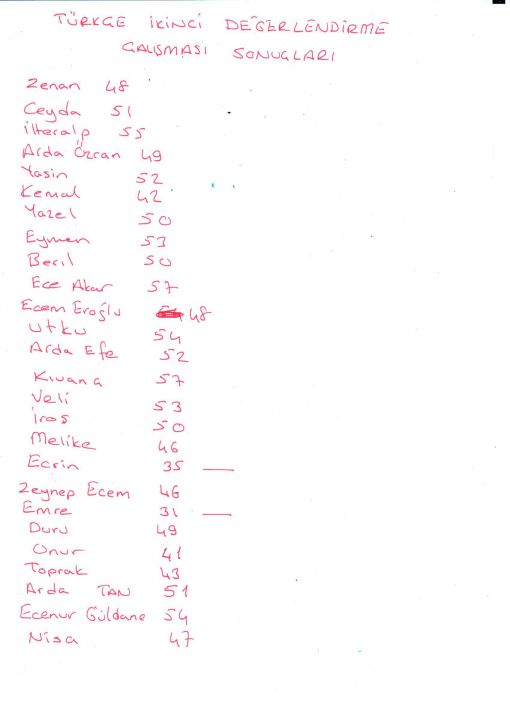 TÜRKÇE İKİNCİ DEĞERLENDİRME
ÇALIŞMASI SONUÇLARI
Zenan 48
Ceyda 51
İlteralp 55
Arda Özcan 49
Yasin 52
Kemal 42
Yazel 50
Eymen 53
Beril 50
Ece Akar 57
Ecem Eroğlu 48
Utku 54
Arda Efe 52
Kıvanç 57
Veli 53
İras 50
Melike 46
Ecrin 35
Zeynep Ecem 46
Emre 31
Duru 49
Onur 41
Toprak 43
Arda TAN 51
Ecenur Güldane 54
Nisa 47